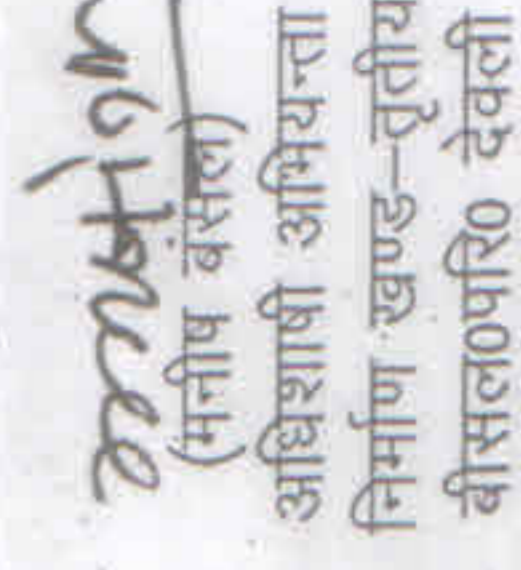 (मनीष बंसल)
अधिशाषी अभियन्ता
निर्माण खण्ड-तृतीय
बीसल०परि० देवली